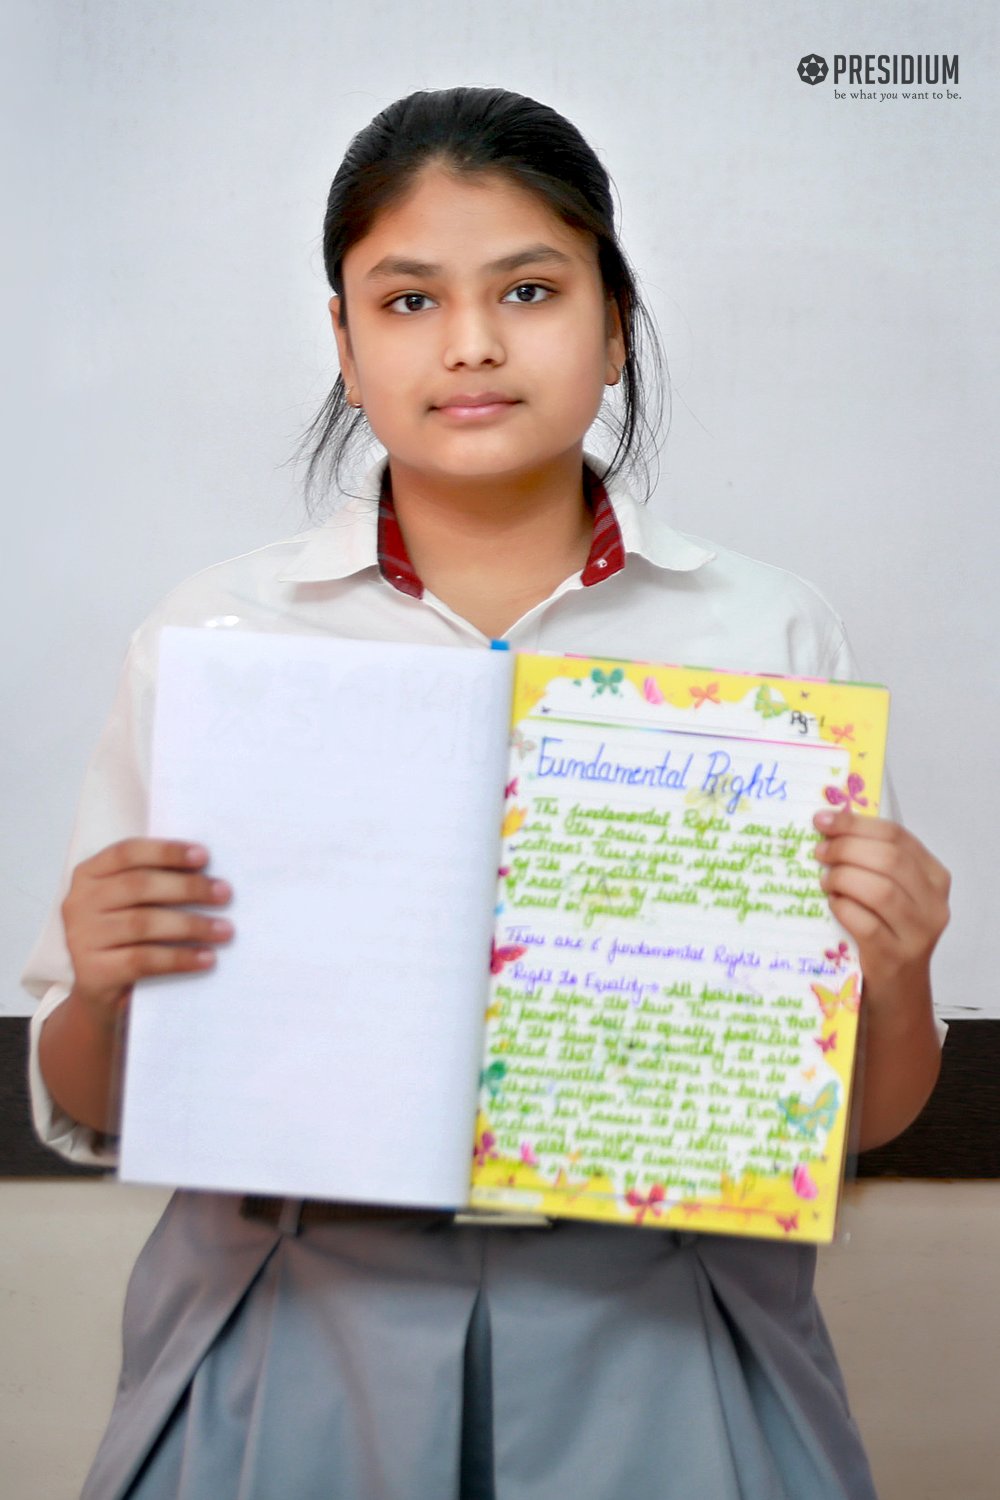 PRESIDIUM
be what you want to be.
Pg-1
Fundamental Rights
The fundamental Rights are
as the basic human right to
citizens. These rights, defined in Part
of the Constitution, apply
race, place of birth, religion, caste,
creed or gender.
There are 6 fundamental Rights in India
Right to Equality → All persons are
equal before the law. This means that
all persons shall be equally protected
by the laws of the country. It also
that the citizens can be
discriminated against on the basis
religion, caste or sex. Every
person has access to all public
including playground, hotels, shops etc.
The state cannot discriminate
matters of employment